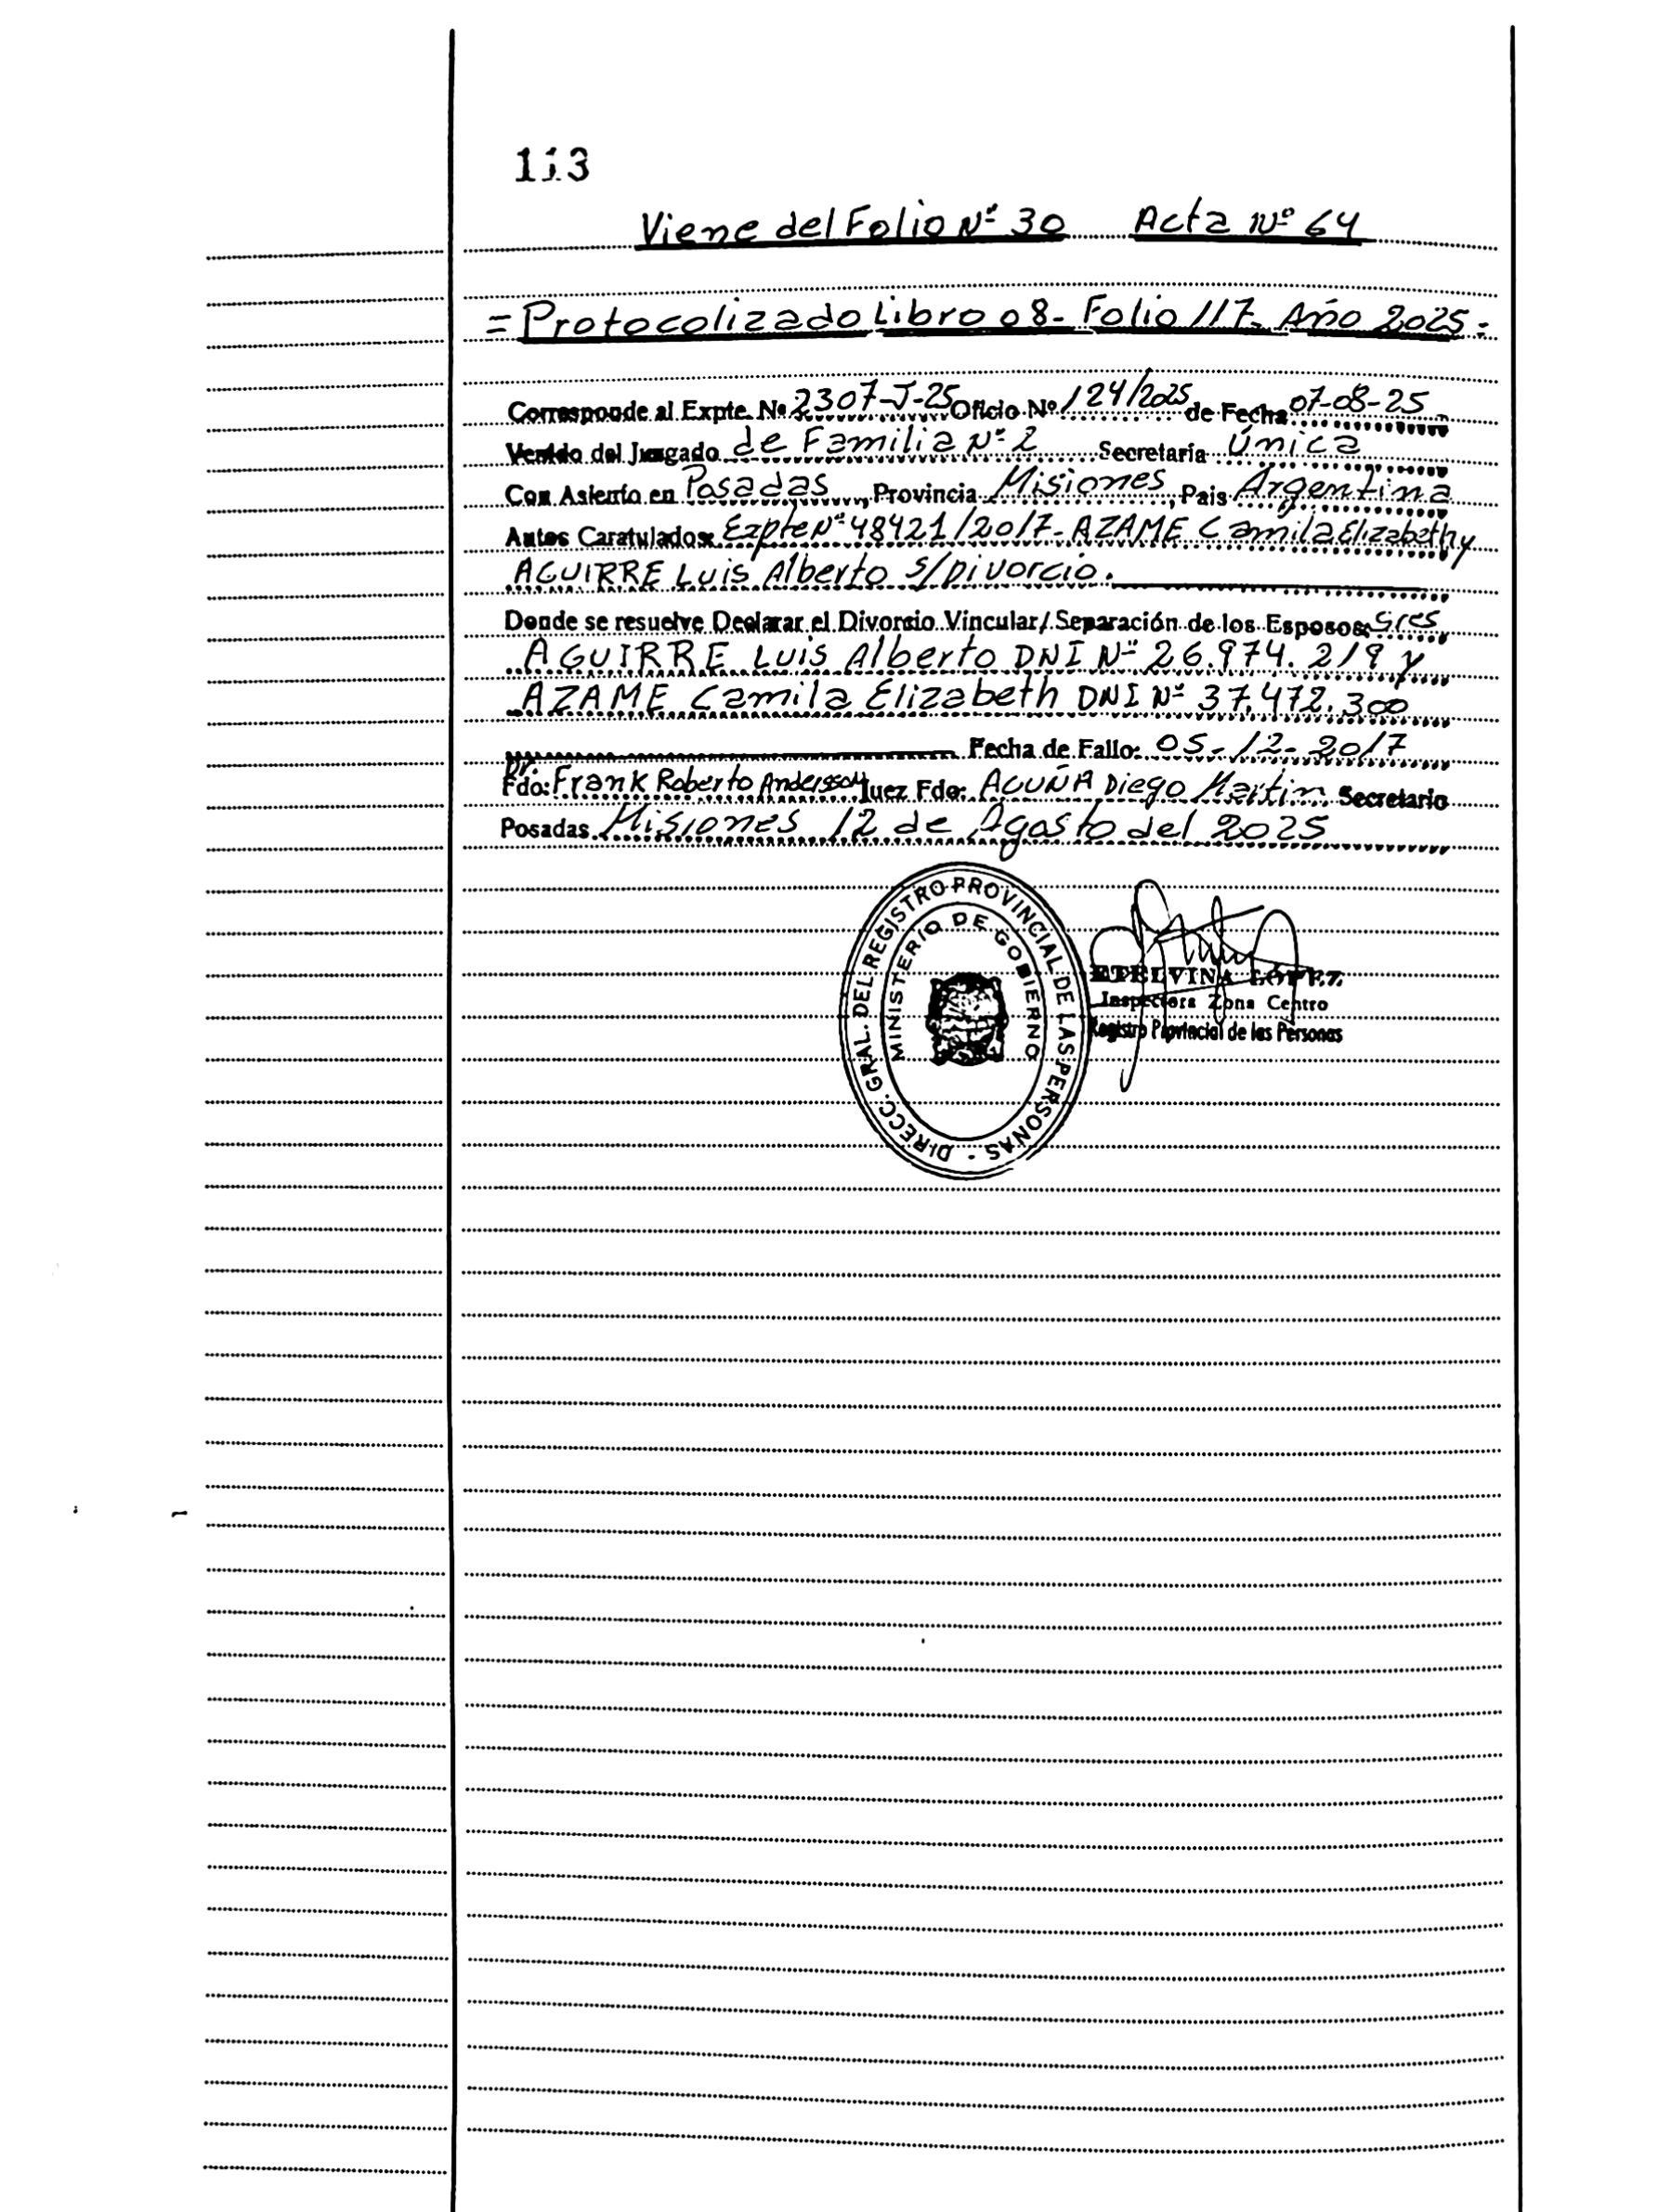 113
Viene del Folio Nº 30 Acta Nº 64
= Protocolizado Libro 08 - Folio 117 - Año 2025 =
Corresponde al Expte. Nº 2307-J-25 Oficio Nº 124/2025 de Fecha 07-08-25
Venido del Juzgado de Familia Nº 2 Secretaría Única
Con Asiento en Posadas, Provincia Misiones, Pais Argentina
Autos Caratulados: Expte Nº 48421/2017 - AZAME Camila Elizabeth y
AGUIRRE Luis Alberto s/Divorcio.
Donde se resuelve Declarar el Divorcio Vincular/Separación de los Esposos: Sres
AGUIRRE Luis Alberto DNI Nº 26.974.219 y
AZAME Camila Elizabeth DNI Nº 37.472.300
Fecha de Fallo: 05-12-2017
Fdo: Dr. Frank Roberto Andersson Juez Fdo: ACUÑA Diego Martin Secretario
Posadas Misiones 12 de Agosto del 2025
DIRECC. GRAL. DEL REGISTRO PROVINCIAL DE LAS PERSONAS -
MINISTERIO DE GOBIERNO
ETELVINA LÓPEZ
Inspectora Zona Centro
Registro Provincial de las Personas